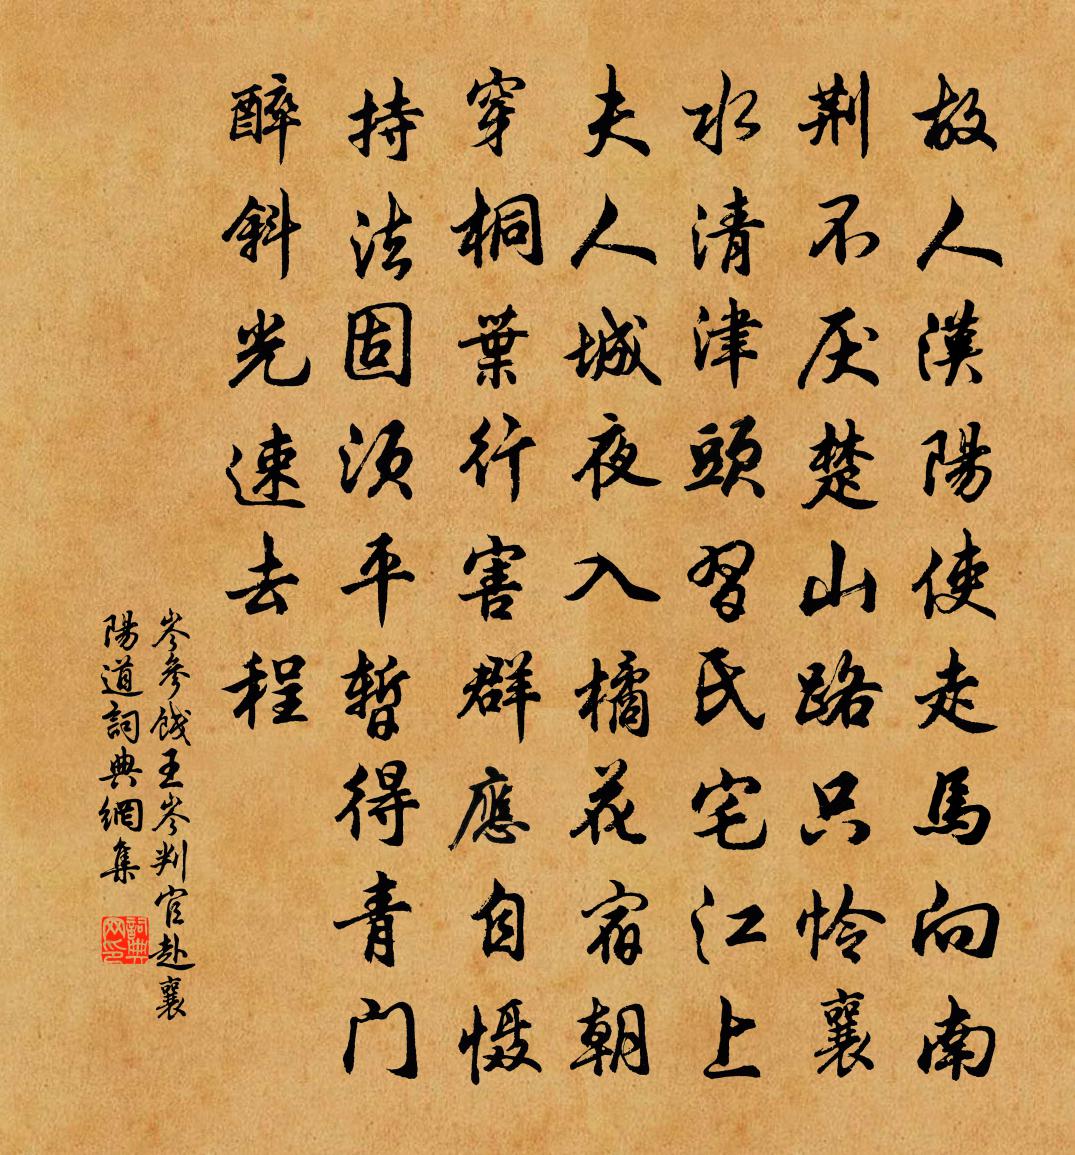 故人漢陽使走馬向南
荆不厌楚山路只怜襄
水清津頭習氏宅江上
夫人城夜入橘花宿朝
穿桐葉行害群應自慑
持法固须平暫得青门
醉斜光速去程
岑參餞王岑判官赴襄
陽道詞典網集
詞典
网印